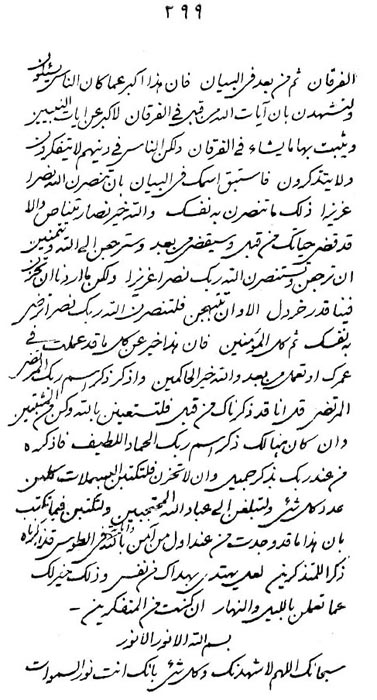 ٢٩٩
الفرقان ثم من بعد فى البيان فان هذا اكبر عما كان الناس يسئلون
ولتشهدن بان آيات الله من قبل فى الفرقان لاكبر عن ايات النبيين
ويثبت بها ما يشاء فى الفرقان ولكن الناس فى دينهم لا يتفكرون
ولا يتذكرون فاستبق اسمك فى البيان بان تنصرن الله نصرا
عزيزا ذلك ما تنصرن به نفسك والله خير نصار نصار والا
قد قضى حياتك من قبل وسيقضى من بعد وسترجعن الى الله وتتمنين
ان ترجعن وتستنصرن الله ربك نصرا عزيزا ولكن ما اردنا ان تحزن
قدر خردل الا وان تبتهجن فلتنصرن الله ربك نصر
به نفسك ثم كل المؤمنين فان هذا خير عن كل ما قد عملت فى
عمرك او تعمل من بعد والله خير الحاكمين واذكر ذكر اسم ربك
المرتضى قل انا قد ذكرناك من قبل فلتستعينن بالله وكن من
وان كان هنالك ذكر اسم ربك الحماد اللطيف فاذكره
من عند ربك بذكر جميل وان لا تحزن فلتكتبن البسملات كلهن
عدد كل شئ ولتبلغن الى عباد الله ولتكتبن فيما تكتب
بان هذا ما قد وجدت من عند اول من آمن بالله فى الطوس قد
ذكرا للمتذكرين لعل يهتدى بهداك من نفس وذلك خير لك
عما تعملن بالليل والنهار ان كنت من المتفكرين -
بسم الله الانور الانور
سبحانك اللهم لاشهدنك وكل شئ بانك انت نور السموات